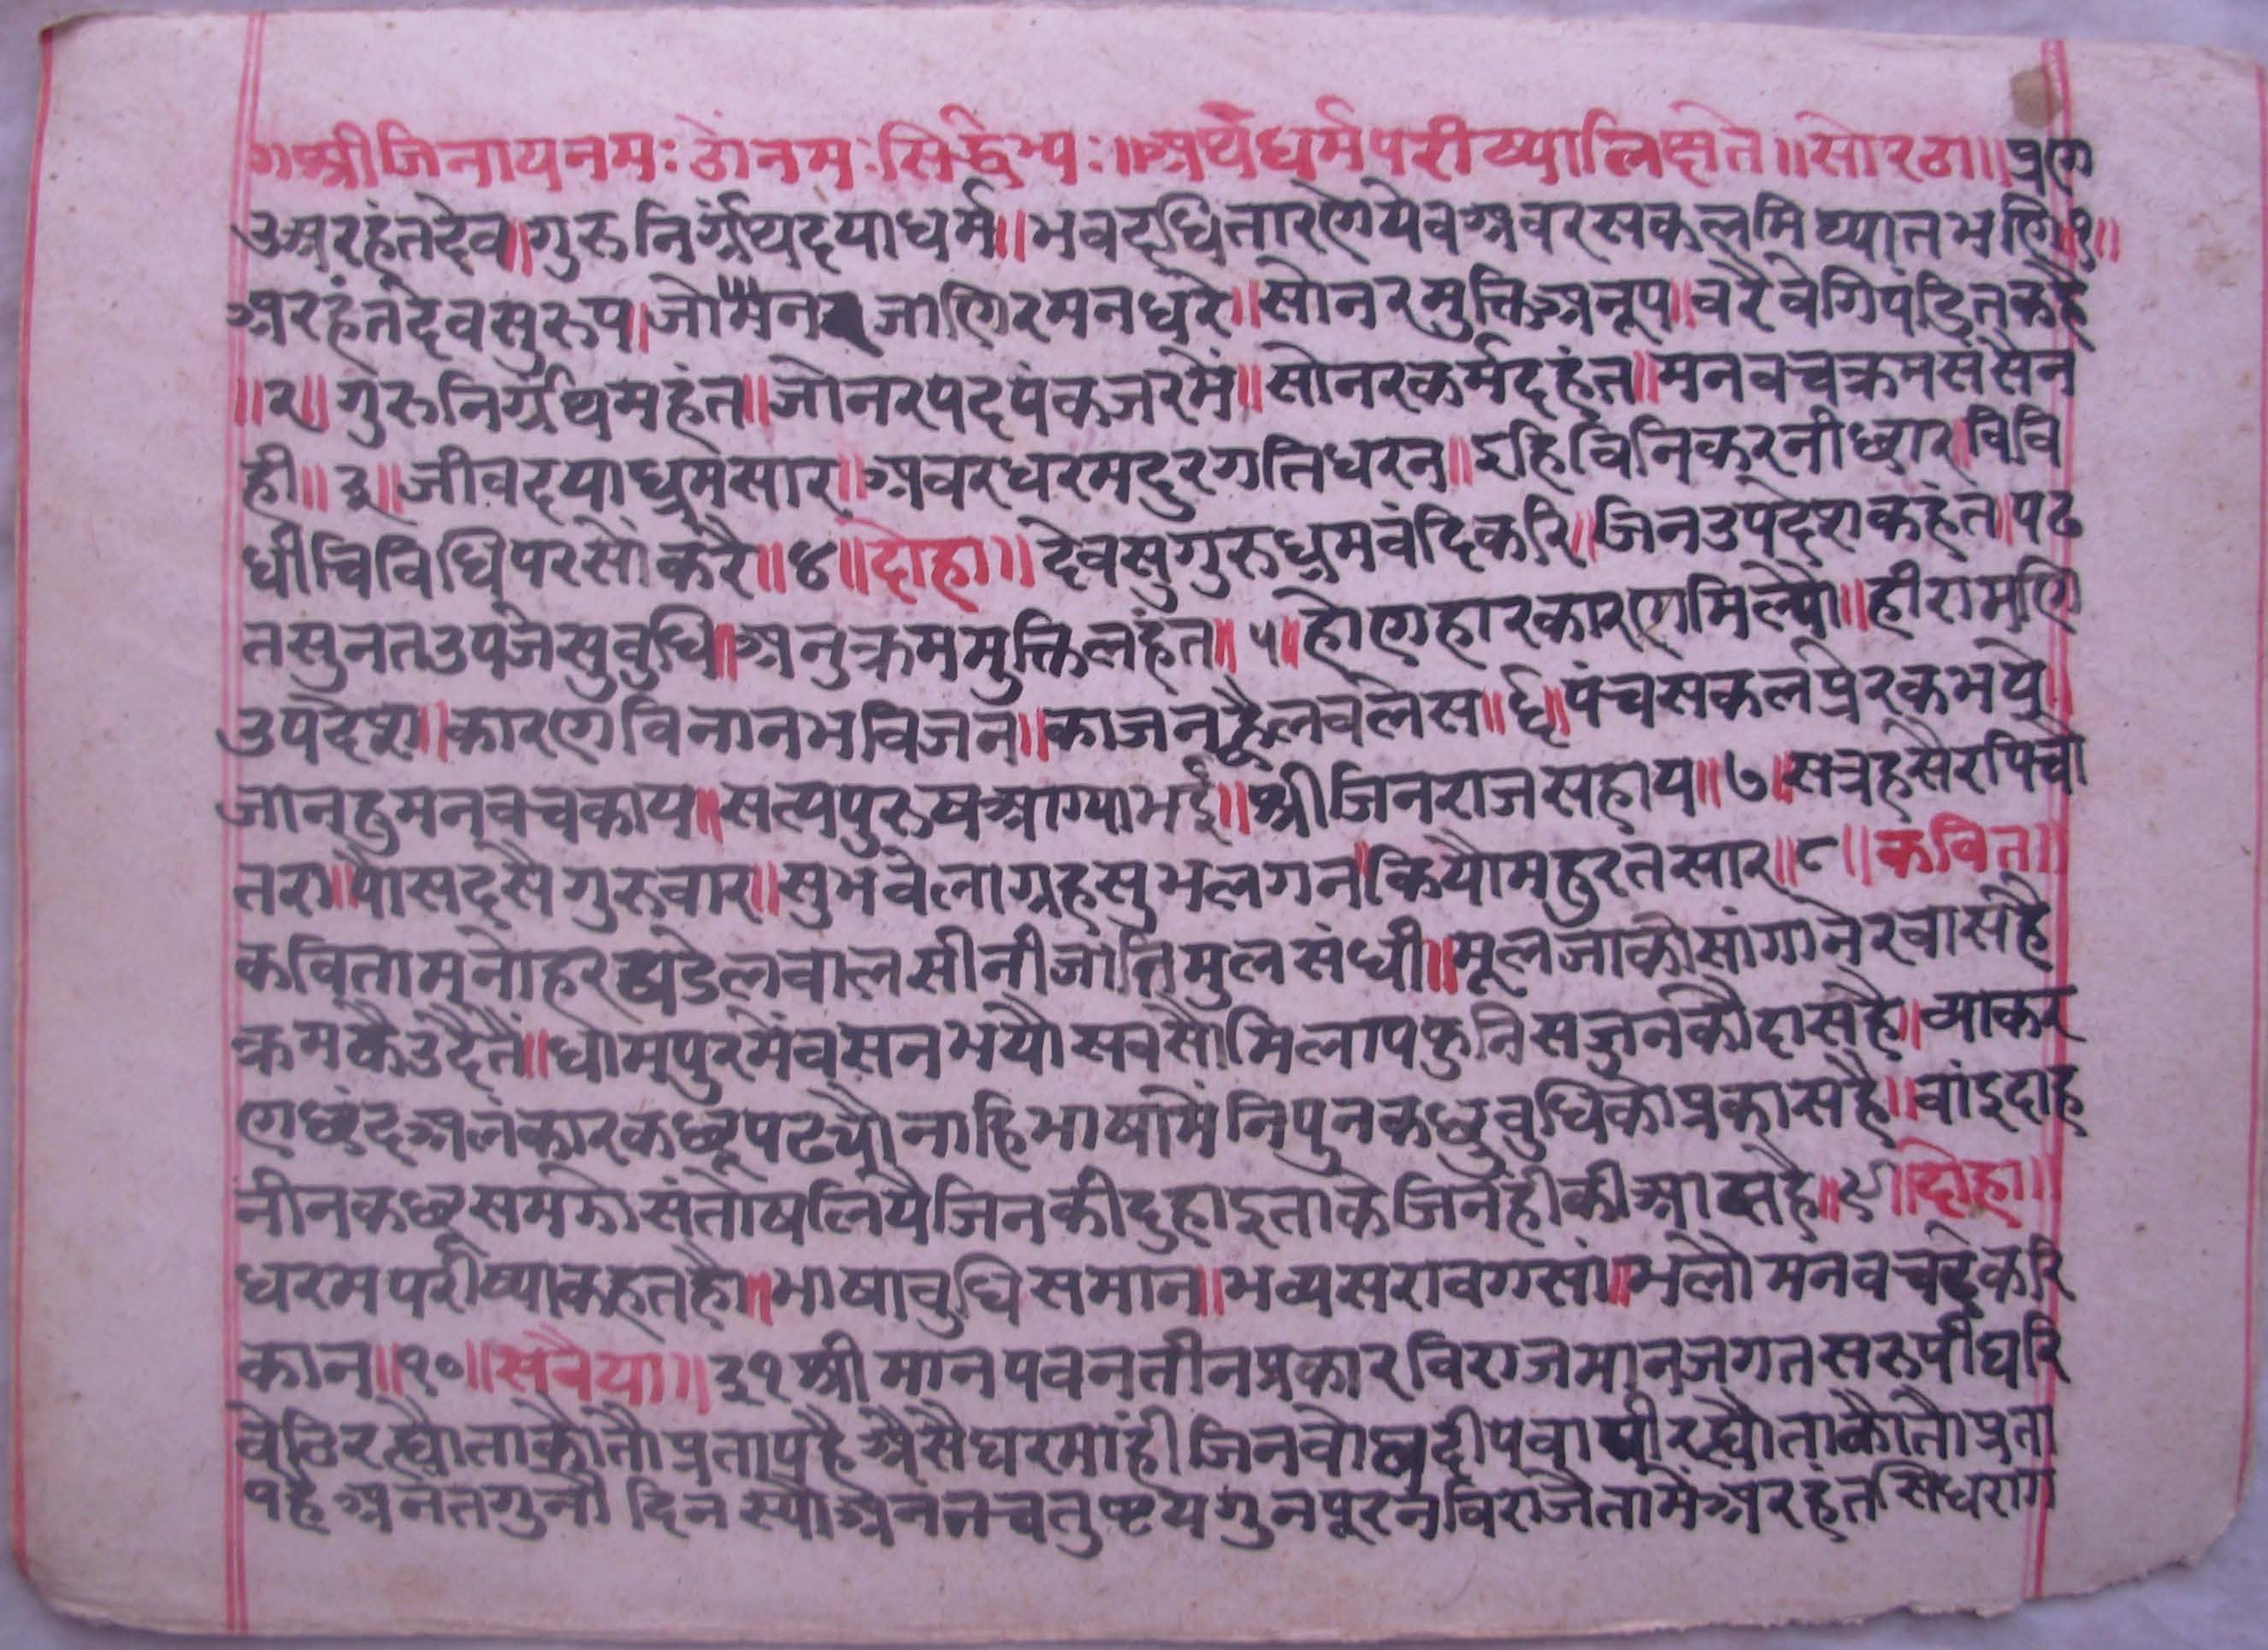 ॥श्रीजिनायनमः ॐनमःसिद्धेभ्यः॥अथधर्मपरीष्यालिष्यते॥सोरठा॥प्रण
उअरहंतदेव॥गुरुनिर्ग्रंथदयाधर्म॥भवदधितारणयेवअवरसकलमिथ्यातभणि॥१॥
अरहंतदेवसुरूप॥जोमैनर जाणिरमनधरे॥सोनरमुक्तिअनूप॥वरैवेगिपंडितकहे
॥२॥गुरुनिर्ग्रंथमहंत॥जोनरपदपंकजरमें॥सोनरकर्मदहंत॥मनवचक्रमसंसैन
ही॥३॥जीवदयाधर्मसार॥अवरधरमदुरगतिधरन॥इहिविनिकरनीछार॥विवि
धीविविधिपरसौंकरै॥४॥दोहा॥देवसुगुरुध्रमवंदिकरि॥जिनउपदेशकहंत॥पढ
तसुनतउपजेसुवुधि॥अनुक्रममुक्तिलहंत॥५॥होणहारकारणमिलेपो॥हीरामणि
उपदेश॥कारणविनानभविजन॥काजनह्वैलवलेस॥६॥पंचसकलप्रेरकभये॥
जानहुमनवचकाय॥सत्यपुरुषआग्याभई॥श्रीजिनराजसहाय॥७॥सत्रहसैरपिचो
तरा॥पौसदसैगुरुवार॥सुभवेलाग्रहसुभलगन॥कियौमहुरतसार॥८॥कवित॥
कवितामनोहरखंडेलवालसोनीजातिमुलसंघी॥मूलजाकोसांगानेरवासहै
क्रमकैउदैतैं॥धामपुरमेंवसनभयौसवसौंमिलापफुनिसजुनकौदासहै॥व्याकर
णछंदअलंकारकछूपढ्यौनाहिभाषामेंनिपुनकछुवुधिकोप्रकासहै॥वांइदाह
नीनकछूसमगेसंतोषलियैजिनकीदुहाइताकेजिनहीकीआसहै॥९॥दोहा॥
धरमपरीष्याकहतहौं॥भाषावुधिसमान॥भव्यसरावगसां॥भलोमनवचदेकरि
कान॥१०॥सवैया॥३१श्रीमानपवनतीनप्रकारविराजमानजगतसरूपीघरि
वेठिरह्यौताकौतौप्रतापहैअैसैघरमांहीजिनवोधदीपवापीरह्यौताकौतौप्रता
पहैअनंतगुनौ दिनस्यौअनंनचतुष्टयगुनपूरनविराजैतामेंअरहंतसिधराग